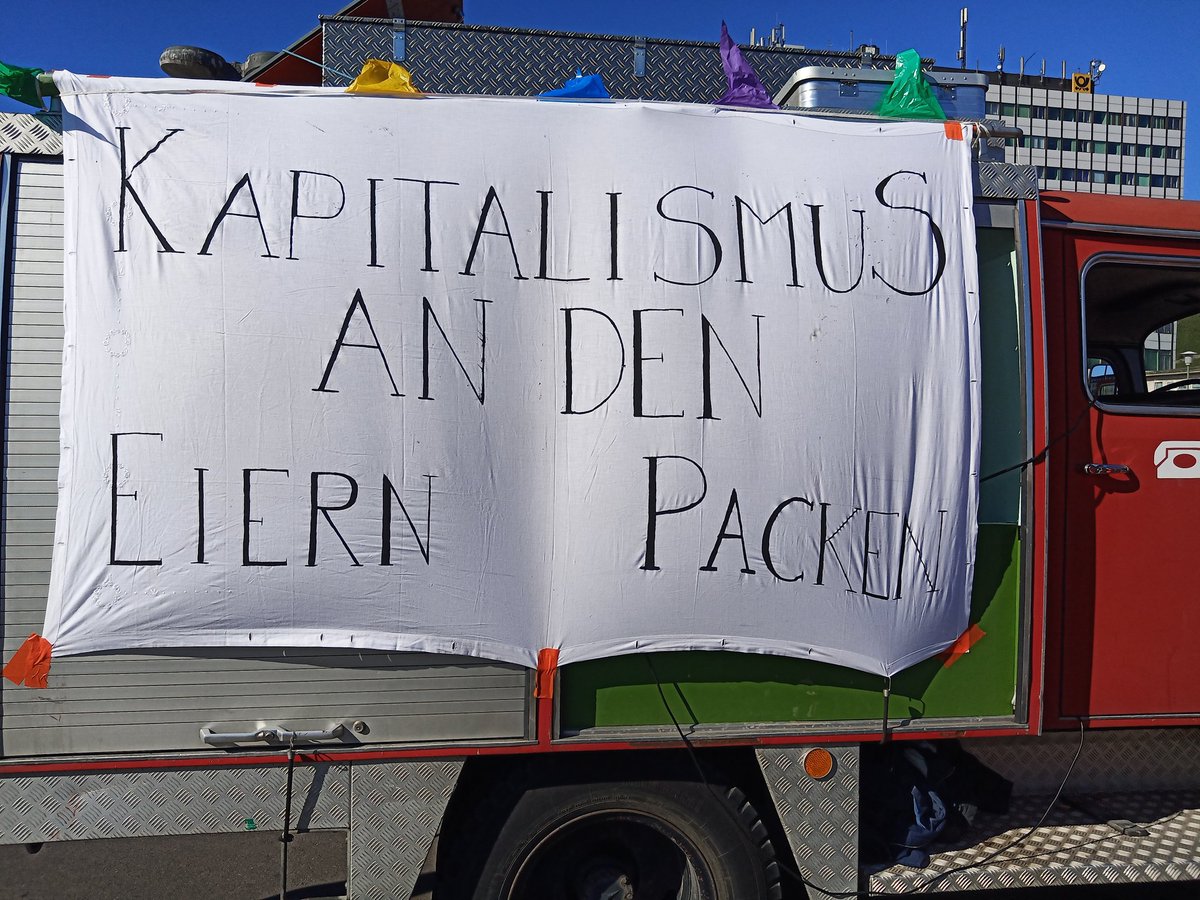 KAPITALISMUS
AN DEN
EIERN PACKEN